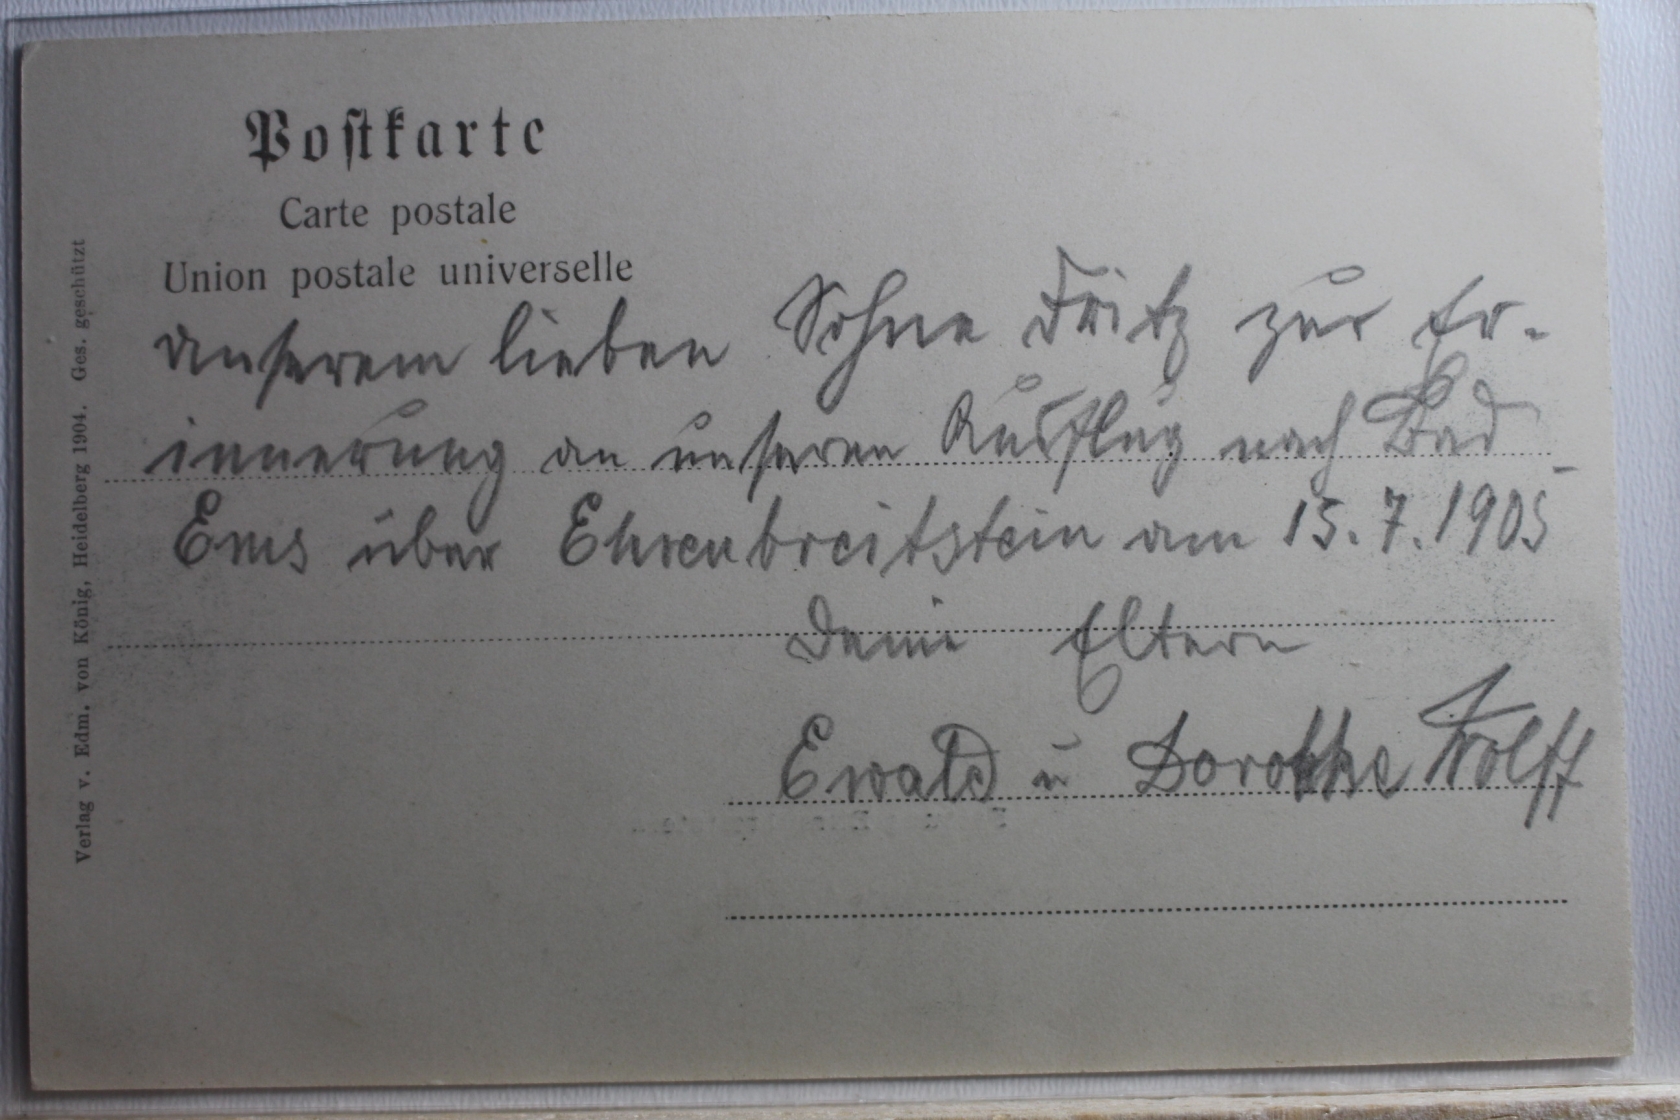 Postkarte
Carte postale
Union postale universelle
unserem lieben Sohne Fritz zur Er-
innerung an unseren Ausflug nach Bad
Ems über Ehrenbreitstein am 15.7.1905
Deine Eltern
Ewald u Dorothe Wolff
Verlag v. Edm. von König, Heidelberg 1904. Ges. geschützt